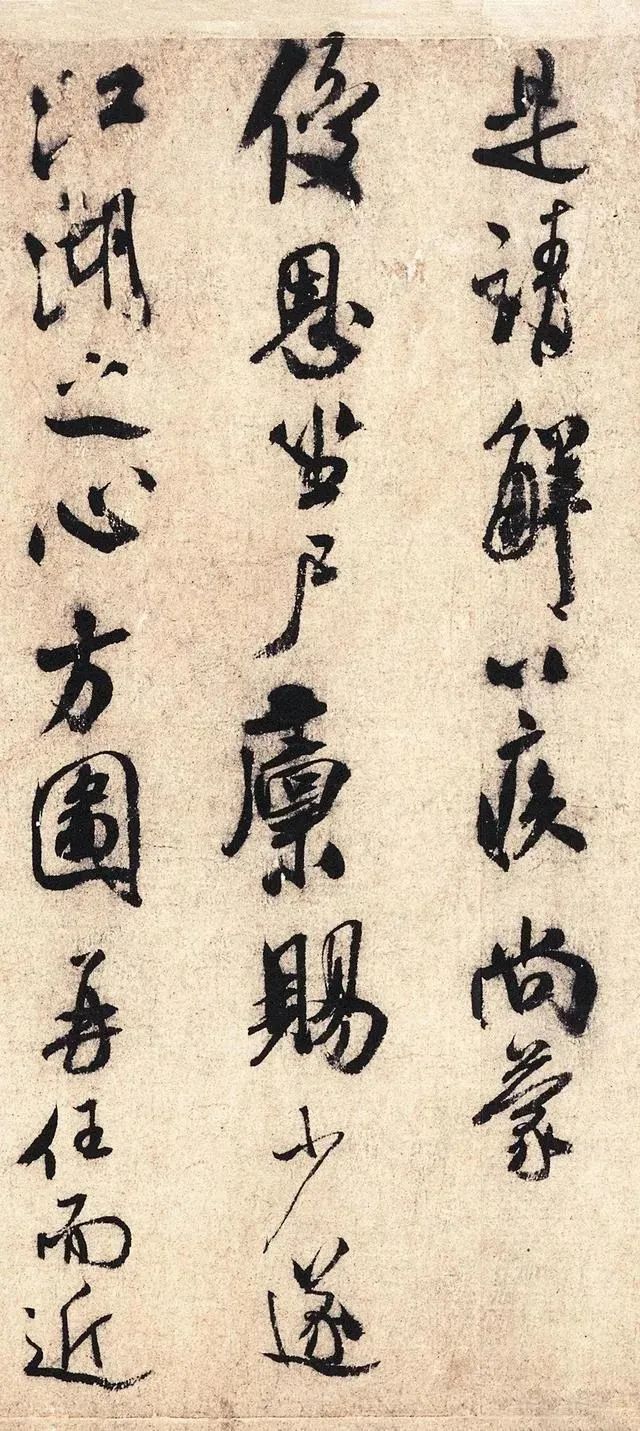 是請解以疾尚蒙
優恩坐尸廩賜少遂
江湖之心方圖再任而近